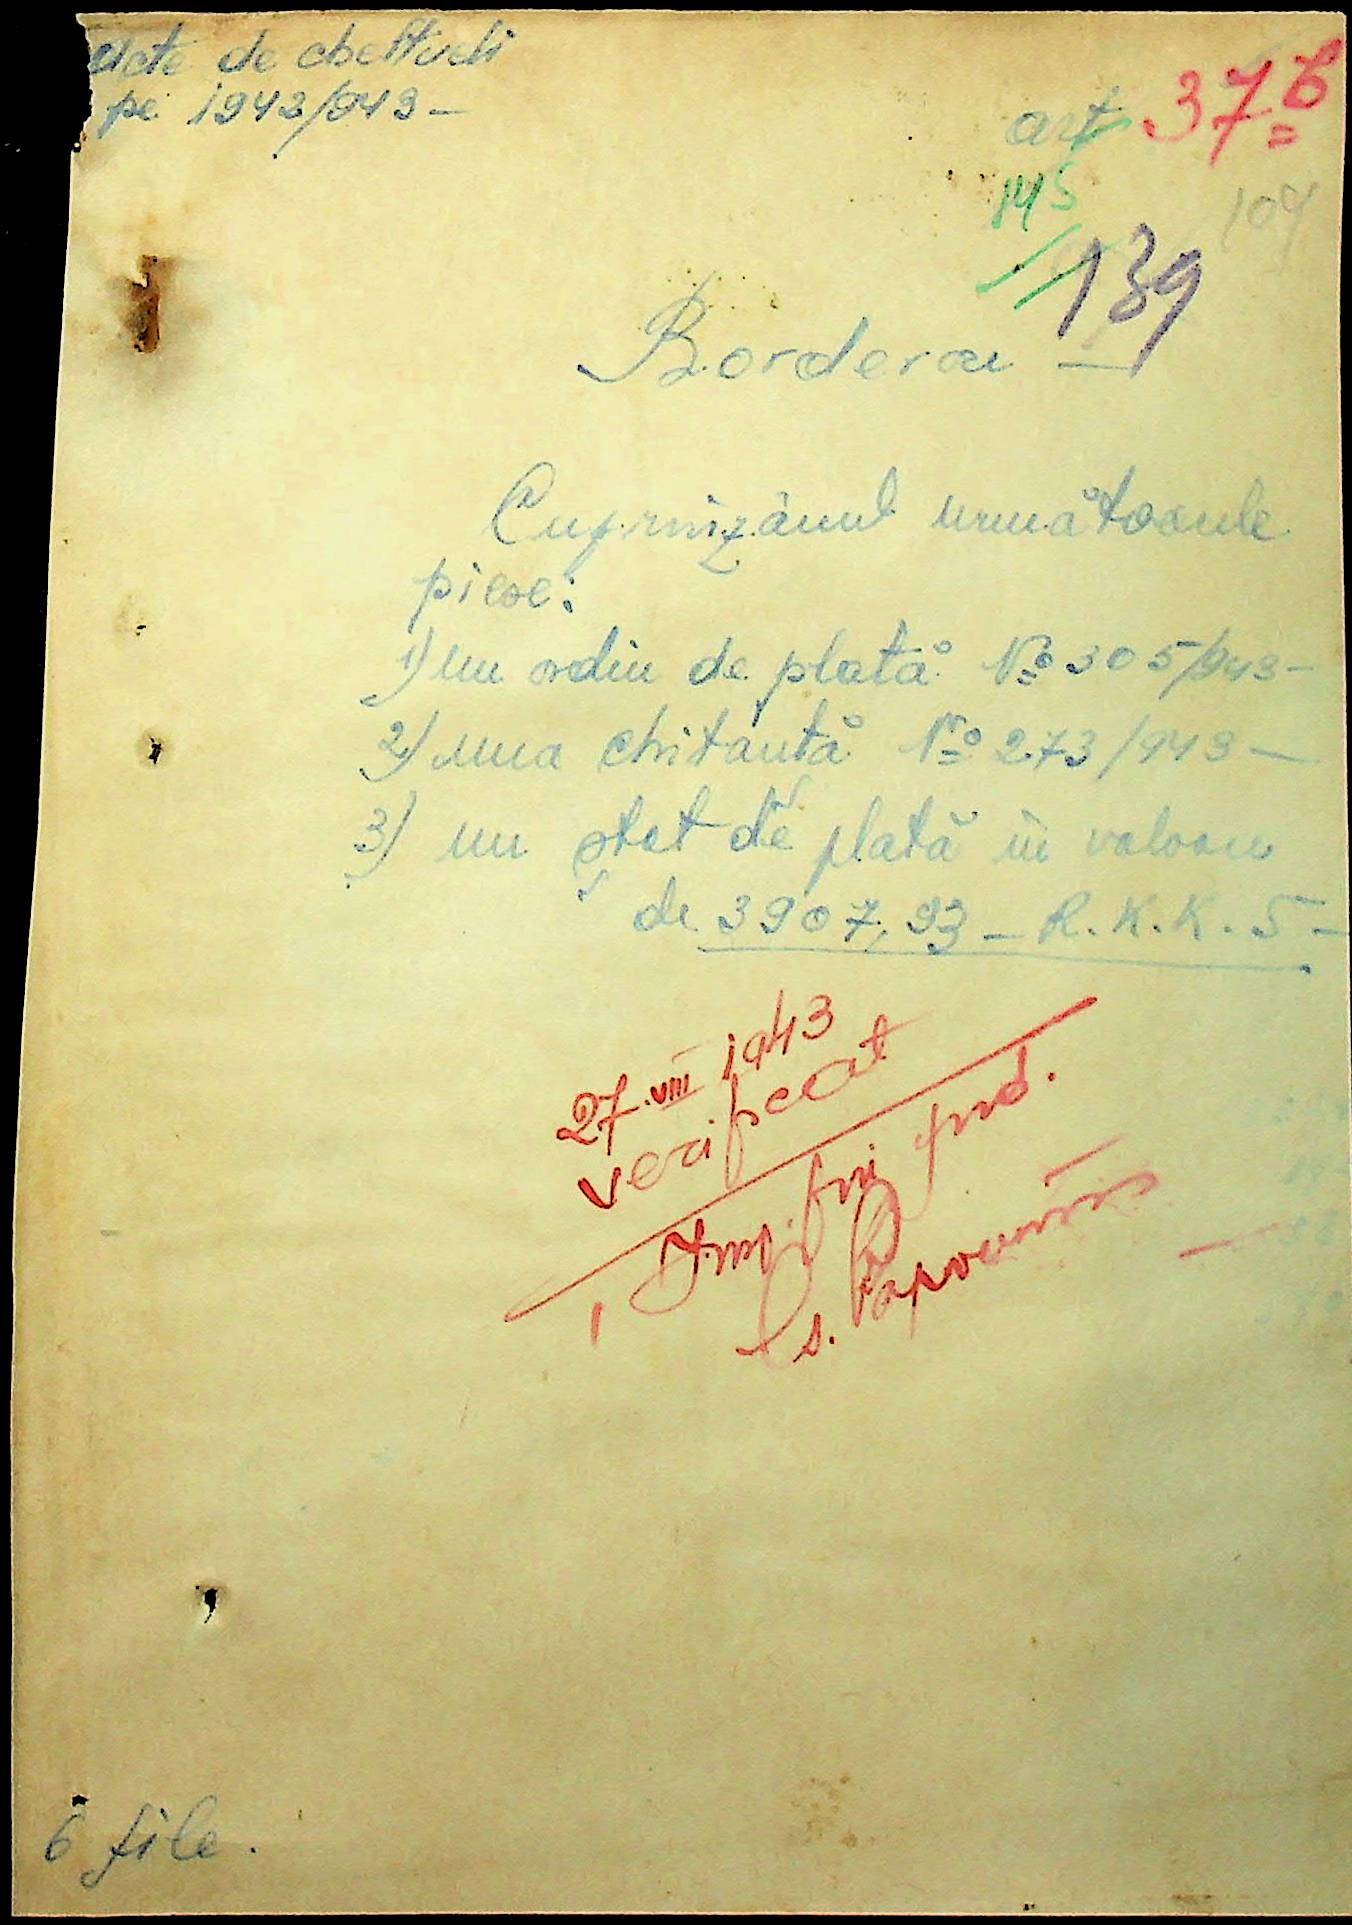 Acte de cheltueli
pe 1942/943 –
art 37 b
145
104
139
Borderou –
Cuprinzând următoarele
piese:
1) un ordin de plată No 305/943 –
2) una chitanță No 273/943 –
3) un ștat de plată în valoare
de 3907,93 – R.K.K.S –
27.VIII 1943
verificat
Imp. fin
s.
6 file.